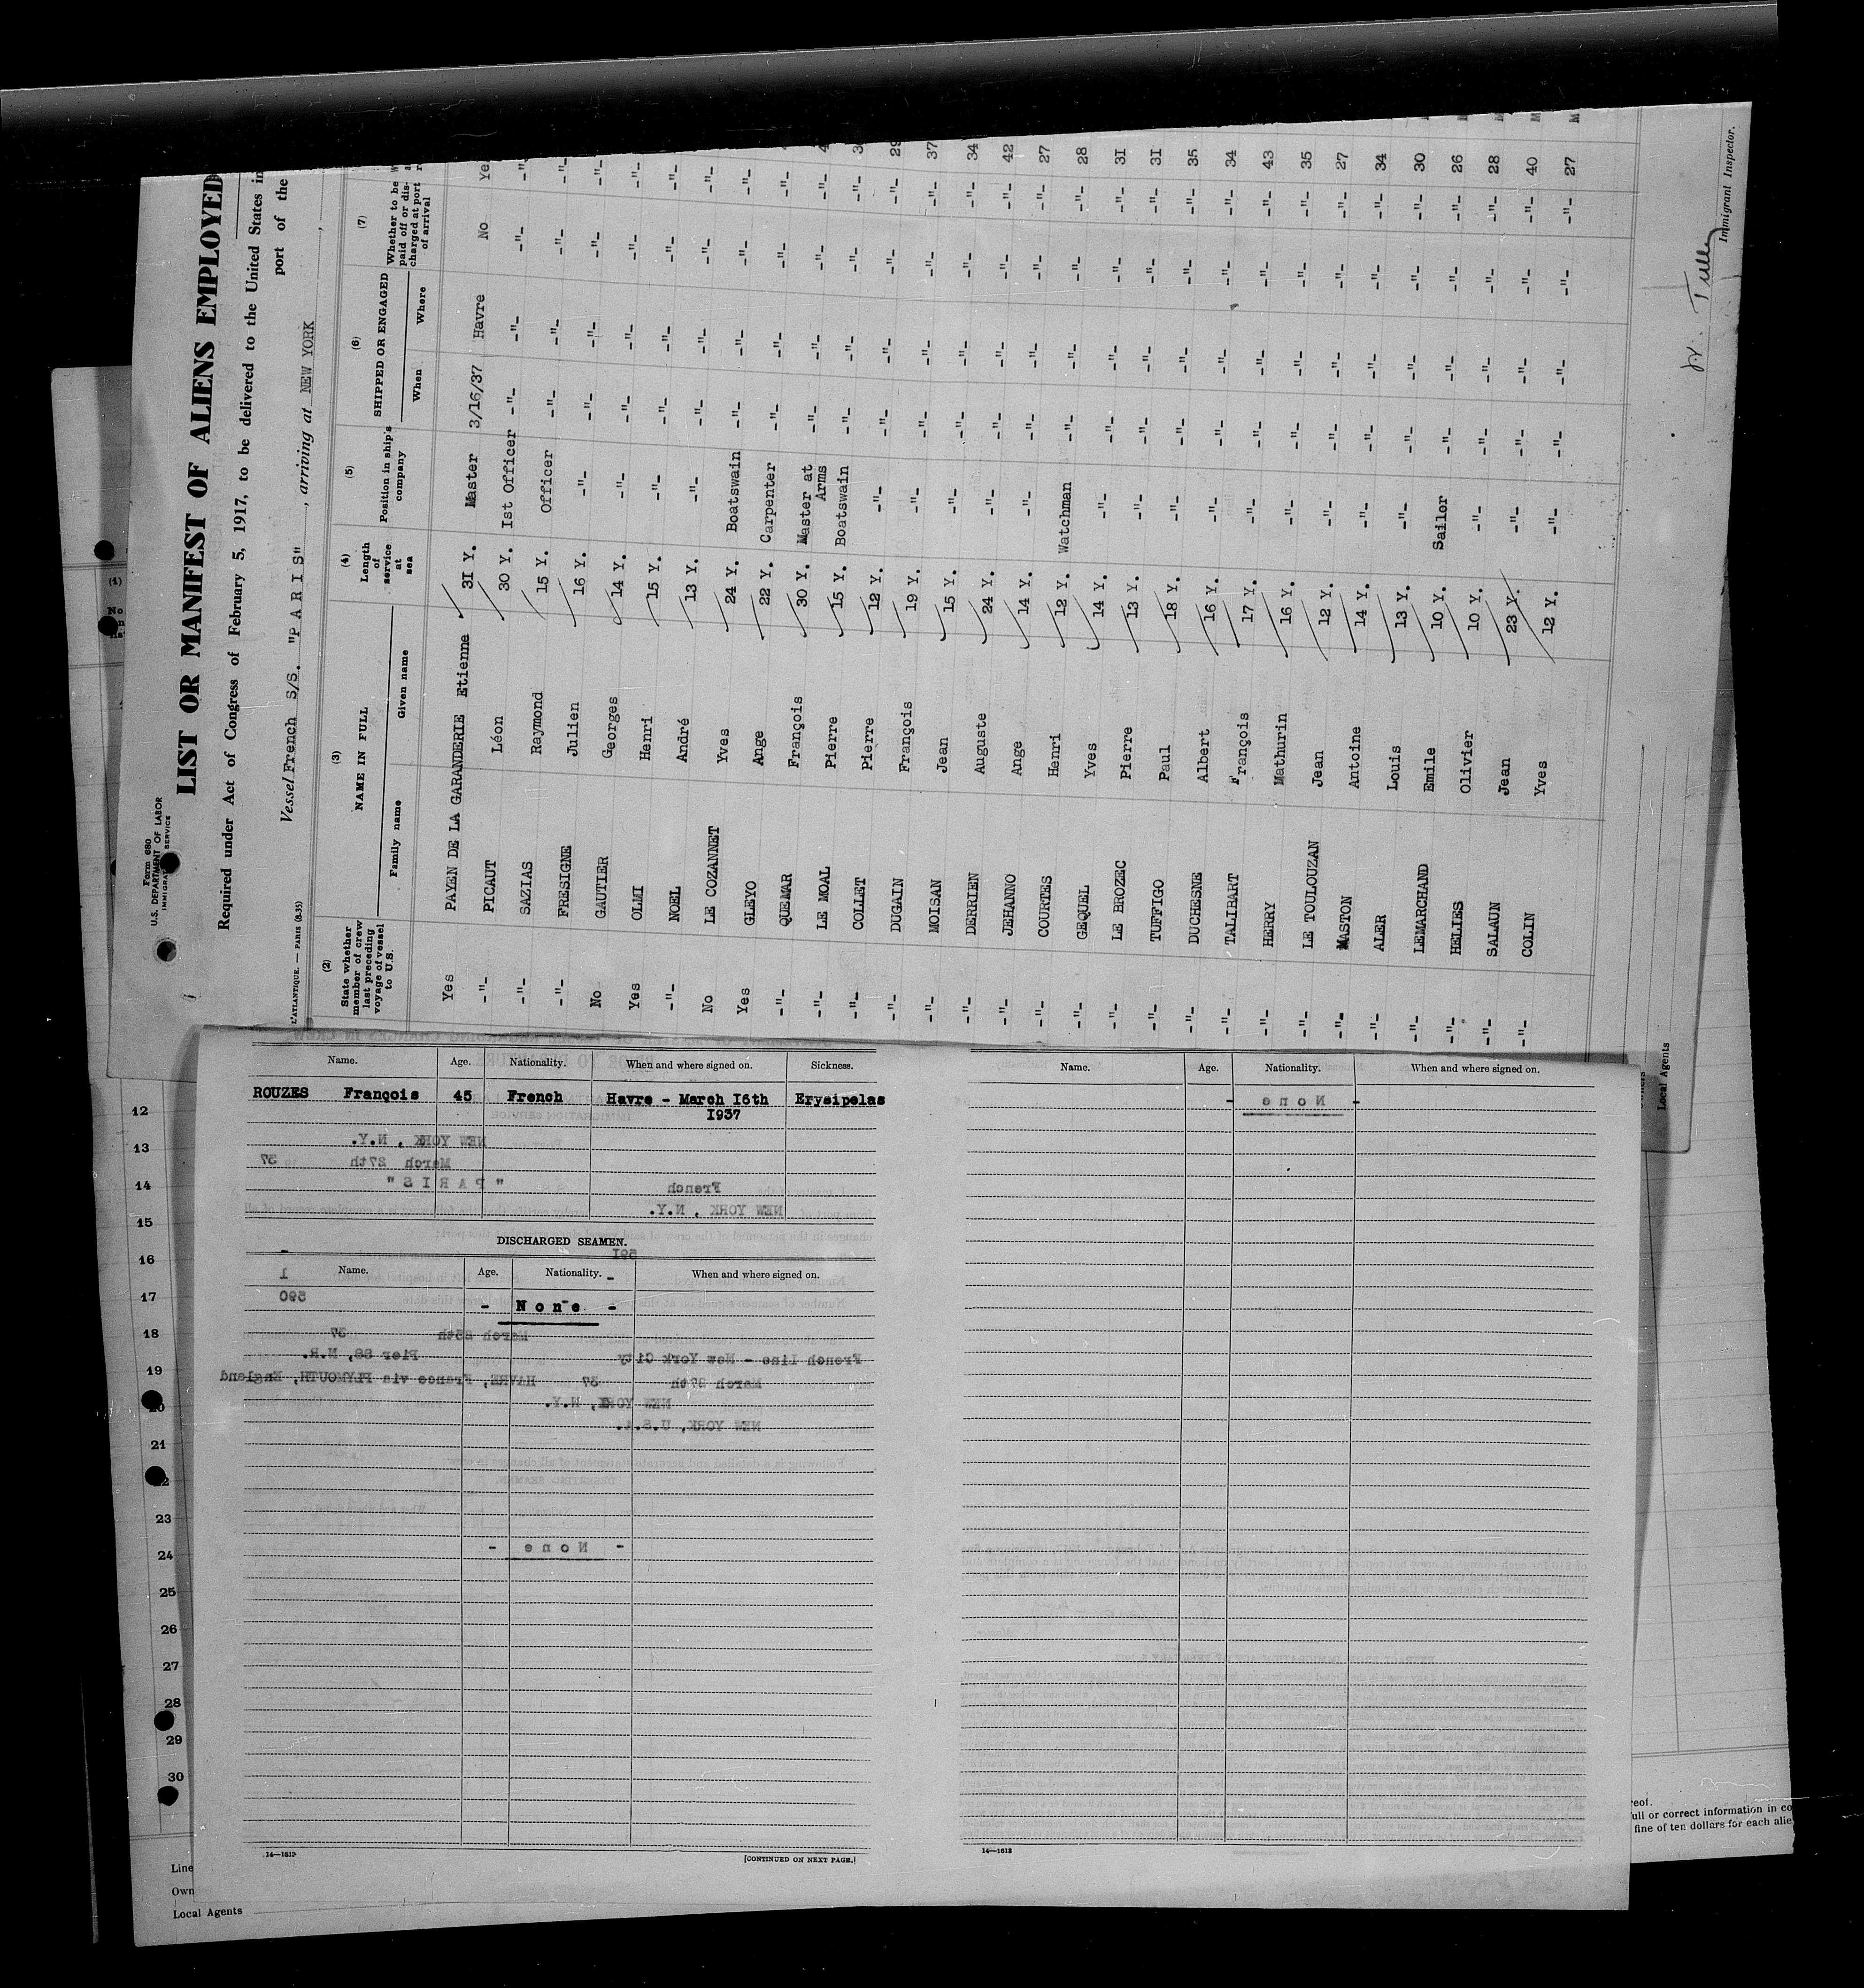 Form 680
U.S. DEPARTMENT OF LABOR
IMMIGRATION SERVICE
LIST OR MANIFEST OF ALIENS EMPLOYED
Required under Act of Congress of February 5, 1917, to be delivered to the United States
port of the
Vessel French S/S. "P A R I S" , arriving at NEW YORK ,
L'ATLANTIQUE. — PARIS (8-35)
(2) (3) (4) (5) (6) (7)
State whether member of crew last preceding voyage of vessel to U.S. NAME IN FULL Length of service at sea Position in ship's company SHIPPED OR ENGAGED Whether to be paid off or discharged at port of arrival
Family name Given name When Where
Yes PAYEN DE LA GARANDERIE Etienne 3I Y. Master 3/16/37 Havre No Ye
-"- PICAUT Léon 30 Y. Ist Officer -"- -"- -"- -"-
-"- SAZIAS Raymond 15 Y. Officer -"- -"- -"- -"-
-"- FRESIGNE Julien 16 Y. -"- -"- -"- -"- -"-
No GAUTIER Georges 14 Y. -"- -"- -"- -"- -"-
Yes OLMI Henri 15 Y. -"- -"- -"- -"- -"-
-"- NOEL André 13 Y. -"- -"- -"- -"- -"-
No LE COZANNET Yves 24 Y. Boatswain -"- -"- -"- -"-
Yes GLEYO Ange 22 Y. Carpenter -"- -"- -"- -"-
-"- QUEMAR François 30 Y. Master at Arms -"- -"- -"- -"-
-"- LE MOAL Pierre 15 Y. Boatswain -"- -"- -"- -"-
-"- COLLET Pierre 12 Y. -"- -"- -"- -"- -"- 29
-"- DUGAIN François 19 Y. -"- -"- -"- -"- -"- 37
-"- MOISAN Jean 15 Y. -"- -"- -"- -"- -"- 34
-"- DERRIEN Auguste 24 Y. -"- -"- -"- -"- -"- 42
-"- JEHANNO Ange 14 Y. -"- -"- -"- -"- -"- 27
-"- COURTES Henri 12 Y. Watchman -"- -"- -"- -"- 28
-"- GEQUEL Yves 14 Y. -"- -"- -"- -"- -"- 3I
-"- LE BROZEC Pierre 13 Y. -"- -"- -"- -"- -"- 3I
-"- TUFFIGO Paul 18 Y. -"- -"- -"- -"- -"- 35
-"- DUCHESNE Albert 16 Y. -"- -"- -"- -"- -"- 34
-"- TALIBART François 17 Y. -"- -"- -"- -"- -"- 43
-"- HERRY Mathurin 16 Y. -"- -"- -"- -"- -"- 35
-"- LE TOULOUZAN Jean 12 Y. -"- -"- -"- -"- -"- 27
-"- MASTON Antoine 14 Y. -"- -"- -"- -"- -"- 34
-"- ALER Louis 13 Y. -"- -"- -"- -"- -"- 30
-"- LEMARCHAND Emile 10 Y. Sailor -"- -"- -"- -"- 26
-"- HELIES Olivier 10 Y. -"- -"- -"- -"- -"- 28
-"- SALAUN Jean 23 Y. -"- -"- -"- -"- -"- 40
-"- COLIN Yves 12 Y. -"- -"- -"- -"- -"- 27
Immigrant Inspector.
Local Agents
Name. Age. Nationality. When and where signed on. Sickness.
ROUZES François 45 French Havre - March I6th I937 Erysipelas
NEW YORK , N.Y.
March 27th 37
" P A R I S " French
NEW YORK , N.Y.
DISCHARGED SEAMEN.
59I
Name. Age. Nationality. When and where signed on.
1
590
- None -
March 25th 37
French Line - New York City Pier 88, N.R.
March 27th 37 HAVRE, France via PLYMOUTH, England
NEW YORK, N.Y.
NEW YORK, U.S.A.
- None -
14—1613
[CONTINUED ON NEXT PAGE.]
Name. Age. Nationality. When and where signed on.
- None -
14—1613
12
13
14
15
16
17
18
19
20
21
22
23
24
25
26
27
28
29
30
Line
Own
Local Agents
reof.
full or correct information in co
fine of ten dollars for each alie